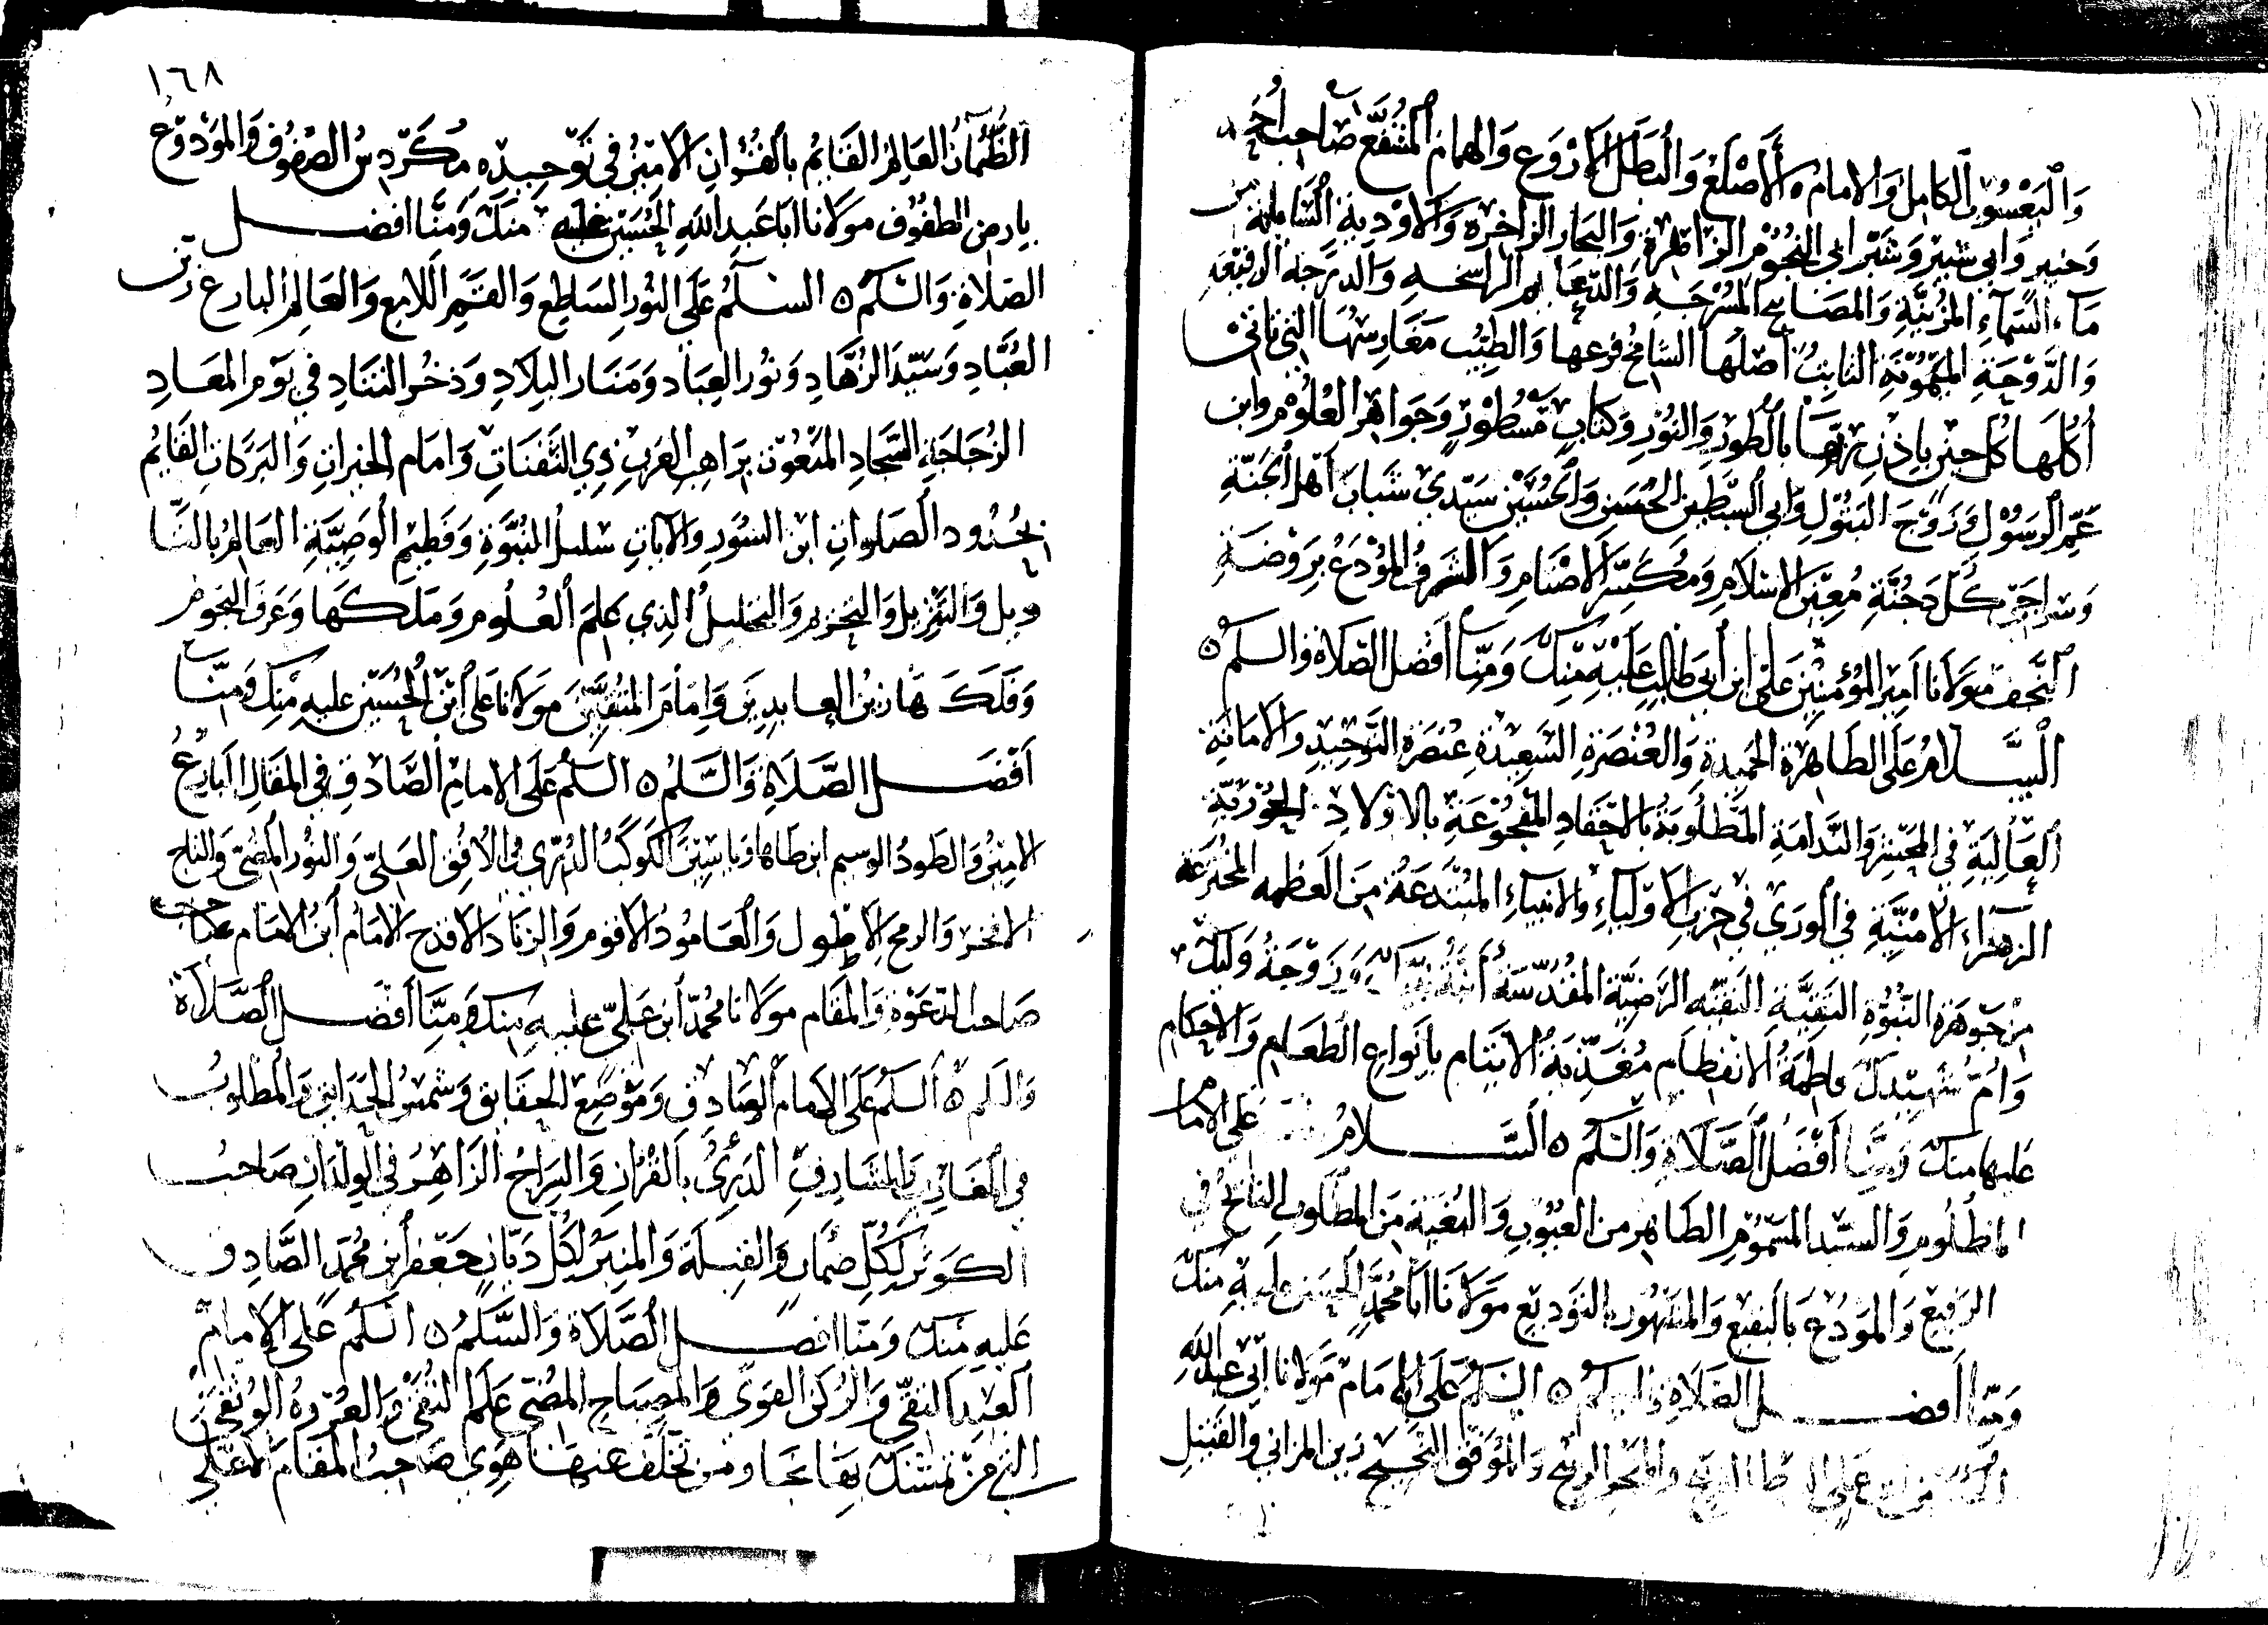 وَالْيَعْسُوبِ الكامِلِ وَالامام الأَصْلَعْ وَالْبَطَلِ الأَرْوَعِ وَالهمام المُشَفَّع صَاحِب أُحَد
وخيبر وَابي شبير وَشبَّر ابي النجُوْم الزاهرة وَالبحار الزاخره وَالاوْدية الشاملة من
مآء السَّماءِ المزْنيَّةِ وَالمصَابيح المُسْرجَه وَالدَّعَايم الراسخه وَالدرَجه الرفيْعَه
وَالدَّوْحَةِ الميمُوْنَةِ الثابتُ أصْلَها الشامخ فرعها وَالطيّب مَغَارسُهَا التي تاتيْ
أُكُلَها كُلّ حين باذن ربّها بالطور وَالنوْر وَكتابٍ مَّسْطُورٍ وَجوَاهر العُلُوْم وابن
عَمِّ الرسُوْلِ وَزَوْجَ البَتُوْلِ وَابي السِّبْطَين الحسَن وَالحُسَيْن سَيّدي شَبابَ أهْلِ الجَنّةِ
وَسراجَ كلّ دَجُنَّةِ مُعيْن الاسْلام وَمُكَسِّر الاصْنَام وَالشرف المُوْدَعُ برَوْضَةِ
النَّجف مَولانا امير المُؤمنين علي ابن أبي طَالب عَليْهِ مِنكَ وَمِنّا أفضل الصّلاة والسلم ۞
السَّلامُ عَلى الطَاهِرَة الحميدة وَالعُنْصَرةِ السَّعيْدَةِ عِنْصَرة التوْحِيدِ وَالامانَةِ
العَاليَةِ في المحْشر وَالنَّدامَةِ المَطْلُوبةِ بالاحْقادِ المفْجُوْعَةِ بالاوْلادِ الحوْريّة
الزهْراء الامْنيَّة في الْوَرَى في حزب الأوْليآءِ والانبياءِ المبْتَدعَة مِنَ العَظمه المخْترعَة
مِنْ جَوهَرة النُّبُوَّةِ التَقيَّةِ النقيّه الرَضيَّة المقُدّسَة ابنَةُ وَزَوْجَةُ وَليّك
وَأُمّ شهِيدكَ فاطمَةُ الانفطَام مُغَذّيَة الايْتام بانْواع الطعَام وَالاحكام
عليها منك وَمِنَّا أفْضَلُ الصَّلاةِ وَالسَّلَم ۞ السَّلامُ عَلى الامام
المظلوم وَالسيّد المسْمُوم الطَاهِر من العيُوب وَالبُغية مِنَ المطلُوب الناجحُ في
الرفيع وَالموَدُع بالبقيع وَالمشهُور بالتوديع مَوْلَانَا أبا مُحمَّدٍ الحسَن عليْهِ منكَ
وَمِنّا أفضل الصّلاةِ وَالسلم ۞ السّلَم عَلى الامام مَوْلانا أبي عبد الله
وَالموفّق النجيح زين المزاني والقتيل
١٦٨
الظَّمْآنُ العَالِمُ القَايم بالقُرْانِ الامينُ في تَوْحِيدِهِ مُكَرْدسُ الصفُوف وَالموْدوَع
بارض الطفُوف مَولانا أبا عَبدِ اللهِ الحُسَيْن عليه منكَ وَمنَّا أفضل
الصّلاةِ وَالسّلَم ۞ السَّلَمُ عَلى النوْر السّاطِع وَالقَمَر اللامع وَالعَالم البارع زين
العُبَّاد وَسَيّد الزهّادِ وَنُور العِبَاد وَمَنَار البِلَادِ وَذخُر التنادِ في يَوْم المعَاد
الزُجَاجَةِ السَّجاد المنعُوت برَاهِبِ العَرَبِ ذي الثفَناتِ وَامَام الخيراتِ وَالبَركاتِ القَايُم
بحُدُود الصلواتِ ابن السُّوَر وَالآياتِ سَليل النُّبُوَّةِ وَفطيم الوَصِيَّةِ العَالم بالتّا
ويل وَالتنزيل وَالتحْريم وَالتحليلُ الذي عَلِمَ العُلُوم وَمَلَكَها وَعَرف النجُوم
وَفَلَكَها زين العابدينَ وَامامَ المتَّقينَ مَوْلانا عَلي ابْنَ الحُسَيْن عليهِ منِك وَمنَّا
أفْضَل الصّلَاةِ وَالسَّلم ۞ السّلمُ عَلى الامام الصَّادقِ في المقال البارعُ
الامينُ وَالطودُ الوسيم ابن طاها وَياسينَ الكوكبُ الدُرّي وُالأفق العَليّ وَالنوْر المُضيّ والتاج
الافخر وَالرمح الاطول وَالْعَامُودُ الاقوم وَالزناد الاقدح الامَام أبنُ الامَام
صَاحب الدعْوةِ وَالمقَام مولانا محمّد أبن عَليّ عليهِ منك وَمنَّا أفضل الصَّلَاة
وَالسَلَم ۞ السّلَمُ عَلى الامام الصَادِقِ وَمَوْضِعْ الحقَايق وَشمْسُ الحَدَايق وَالمطلوبُ
في المغَارب وَالمشَارِق الدَرِيُّ بالقُرْآنِ وَالسِرَاجُ الزَاهِرُ في الولْدانِ صَاحبُ
الكوْثر لكُلّ ضمْآن وَالقبْلَة وَالمنيرُ لكُل دَيّانٍ جَعْفر أبن مُحمّد الصَّادِق
عَليهِ مِنكَ وَمنّا أفضَل الصَّلَاة وَالسَّلَمُ ۞ السّلَم عَلى الامام
العبد التقيّ وَالركن القويّ والمصباح المُضي عَلم التُّقَى وَالعُرْوةُ الوثْقَى
التي منْ تمسّك بهَا نجا ومن تخلّف عنهَا هوى صَاحِبُ المَقَام الأعْلَى